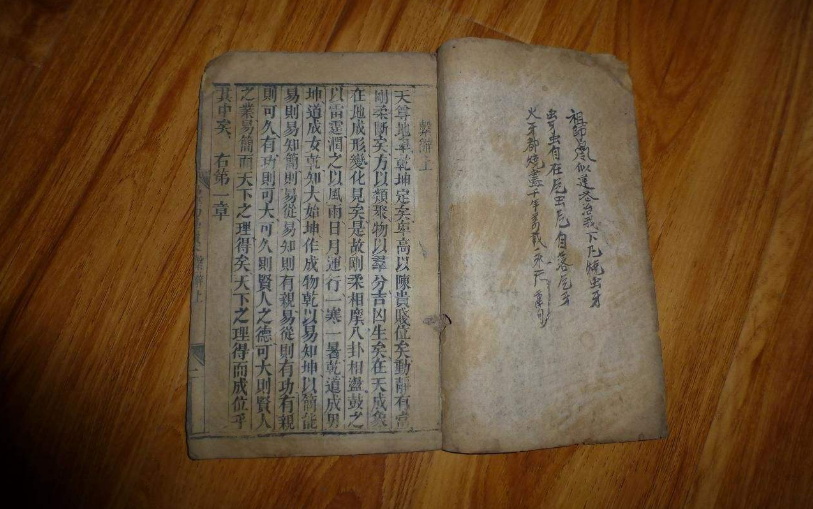 祖師
下凡燒虫牙
虫牙虫自在
自落
火牙都燒盡千年萬載永不
繫辭上
天尊地卑乾坤定矣卑高以陳貴賤位矣動靜有常
剛柔斷矣方以類聚物以羣分吉凶生矣在天成象
在地成形變化見矣是故剛柔相摩八卦相盪鼓之
以雷霆潤之以風雨日月運行一寒一暑乾道成男
坤道成女乾知大始坤作成物乾以易知坤以簡能
易則易知簡則易從易知則有親易從則有功有親
則可久有功則可大可久則賢人之德可大則賢人
之業易簡而天下之理得矣天下之理得而成位乎
其中矣 右第一章